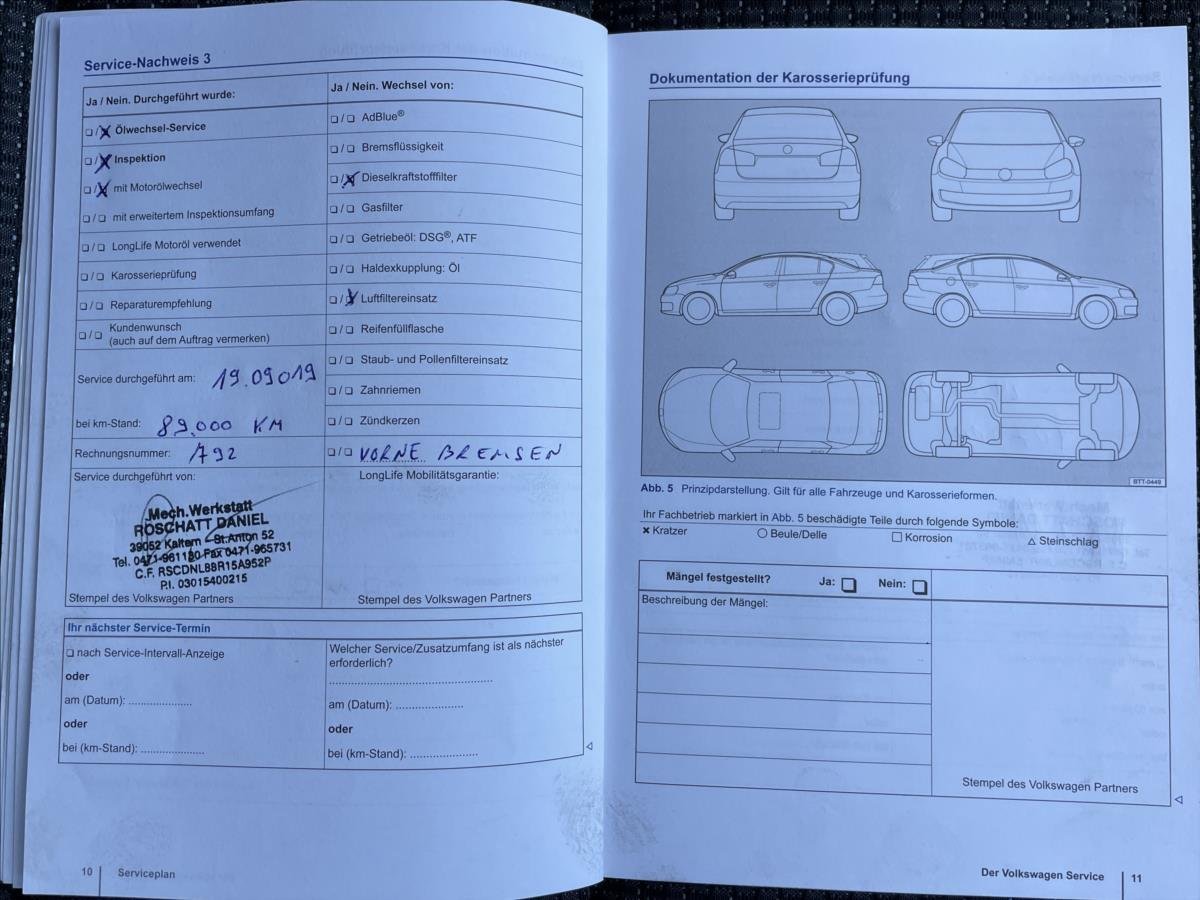 Service-Nachweis 3
Ja / Nein. Durchgeführt wurde:
❏ / ❏ Ölwechsel-Service
❏ / ❏ Inspektion
❏ / ❏ mit Motorölwechsel
❏ / ❏ mit erweitertem Inspektionsumfang
❏ / ❏ LongLife Motoröl verwendet
❏ / ❏ Karosserieprüfung
❏ / ❏ Reparaturempfehlung
❏ / ❏ Kundenwunsch
(auch auf dem Auftrag vermerken)
Service durchgeführt am: 19.09019
bei km-Stand: 89.000 KM
Rechnungsnummer: 792
Service durchgeführt von:
Mech.Werkstatt
ROSCHATT DANIEL
39052 Kaltern - St.Anton 52
Tel. 0471-961180 Fax 0471-965731
C.F. RSCDNL88R15A952P
P.I. 03015400215
Stempel des Volkswagen Partners
Ja / Nein. Wechsel von:
❏ / ❏ AdBlue®
❏ / ❏ Bremsflüssigkeit
❏ / ❏ Dieselkraftstofffilter
❏ / ❏ Gasfilter
❏ / ❏ Getriebeöl: DSG®, ATF
❏ / ❏ Haldexkupplung: Öl
❏ / ❏ Luftfiltereinsatz
❏ / ❏ Reifenfüllflasche
❏ / ❏ Staub- und Pollenfiltereinsatz
❏ / ❏ Zahnriemen
❏ / ❏ Zündkerzen
❏ / ❏ VORNE BREMSEN
LongLife Mobilitätsgarantie:
Stempel des Volkswagen Partners
Ihr nächster Service-Termin
❏ nach Service-Intervall-Anzeige
oder
am (Datum): ....................
oder
bei (km-Stand): ....................
Welcher Service/Zusatzumfang ist als nächster
erforderlich?
....................................................
am (Datum): .....................
oder
bei (km-Stand): .....................
10 Serviceplan
Dokumentation der Karosserieprüfung
BTT-0449
Abb. 5 Prinzipdarstellung. Gilt für alle Fahrzeuge und Karosserieformen.
Ihr Fachbetrieb markiert in Abb. 5 beschädigte Teile durch folgende Symbole:
✕ Kratzer ○ Beule/Delle □ Korrosion △ Steinschlag
Mängel festgestellt? Ja: ❏ Nein: ❏
Beschreibung der Mängel:
Stempel des Volkswagen Partners
Der Volkswagen Service 11